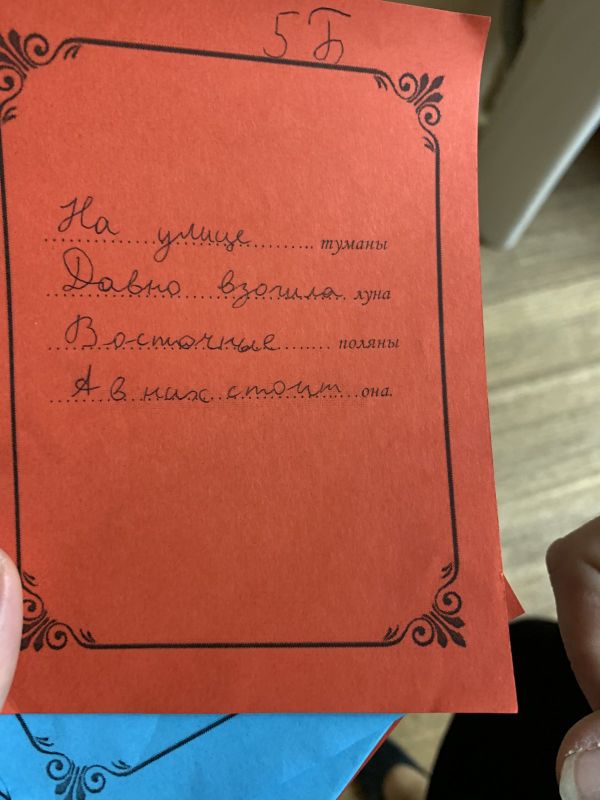 5 Б
На улице туманы
Давно взошла луна
Восточные поляны
А в них стоит она.